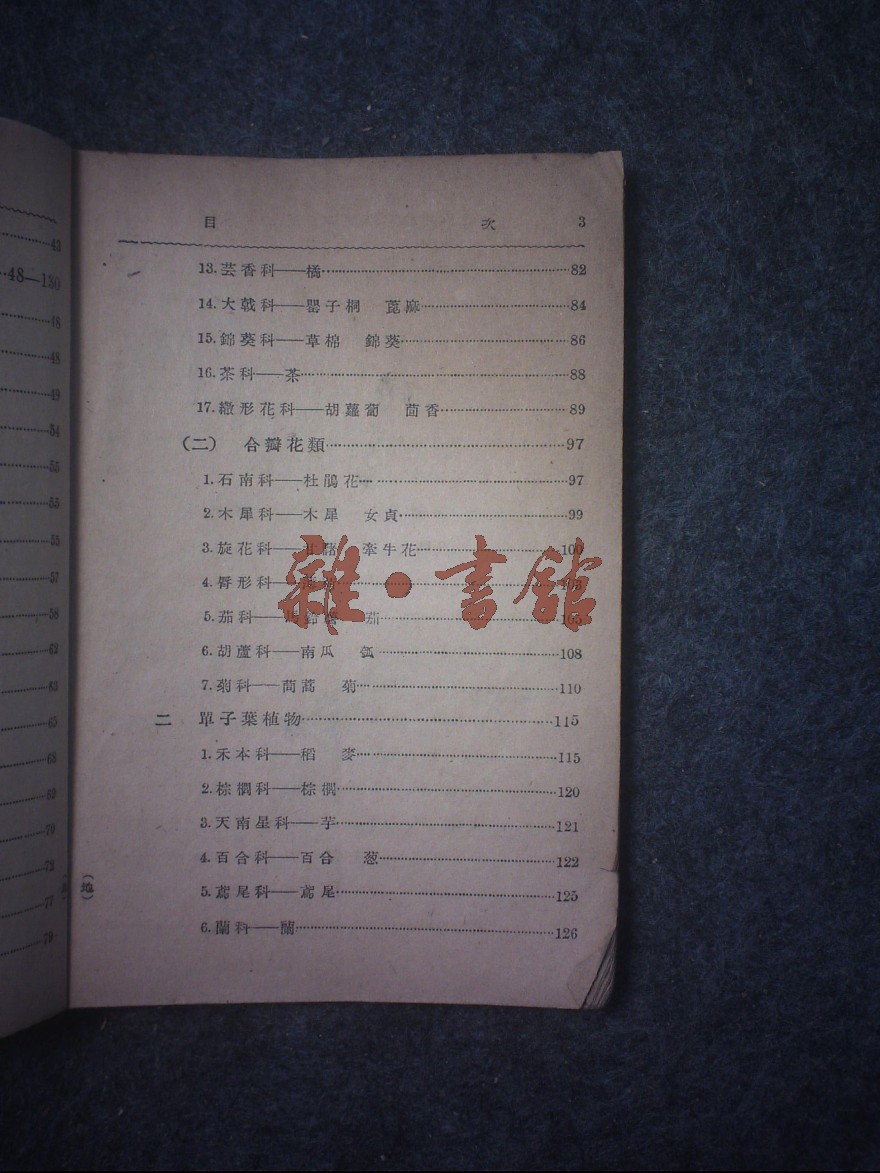 43
48—180
48
48
49
54
55
55
55
57
58
62
63
65
68
69
70
72
77
79
(地)
目 次 3
13.芸香科——橘……82
14.大戟科——罌子桐 蓖麻……84
15.錦葵科——草棉 錦葵……86
16.茶科——茶……88
17.繖形花科——胡蘿蔔 茴香……89
(二) 合瓣花類……97
1.石南科——杜鵑花……97
2.木犀科——木犀 女貞……99
3.旋花科——甘藷 牽牛花……100
4.脣形科——……
5.茄科——馬鈴薯 茄……105
6.胡蘆科——南瓜 瓠……108
7.菊科——茼蒿 菊……110
二 單子葉植物……115
1.禾本科——稻 麥……115
2.棕櫚科——棕櫚……120
3.天南星科——芋……121
4.百合科——百合 葱……122
5.鳶尾科——鳶尾……125
6.蘭科——蘭……126
雜·書館